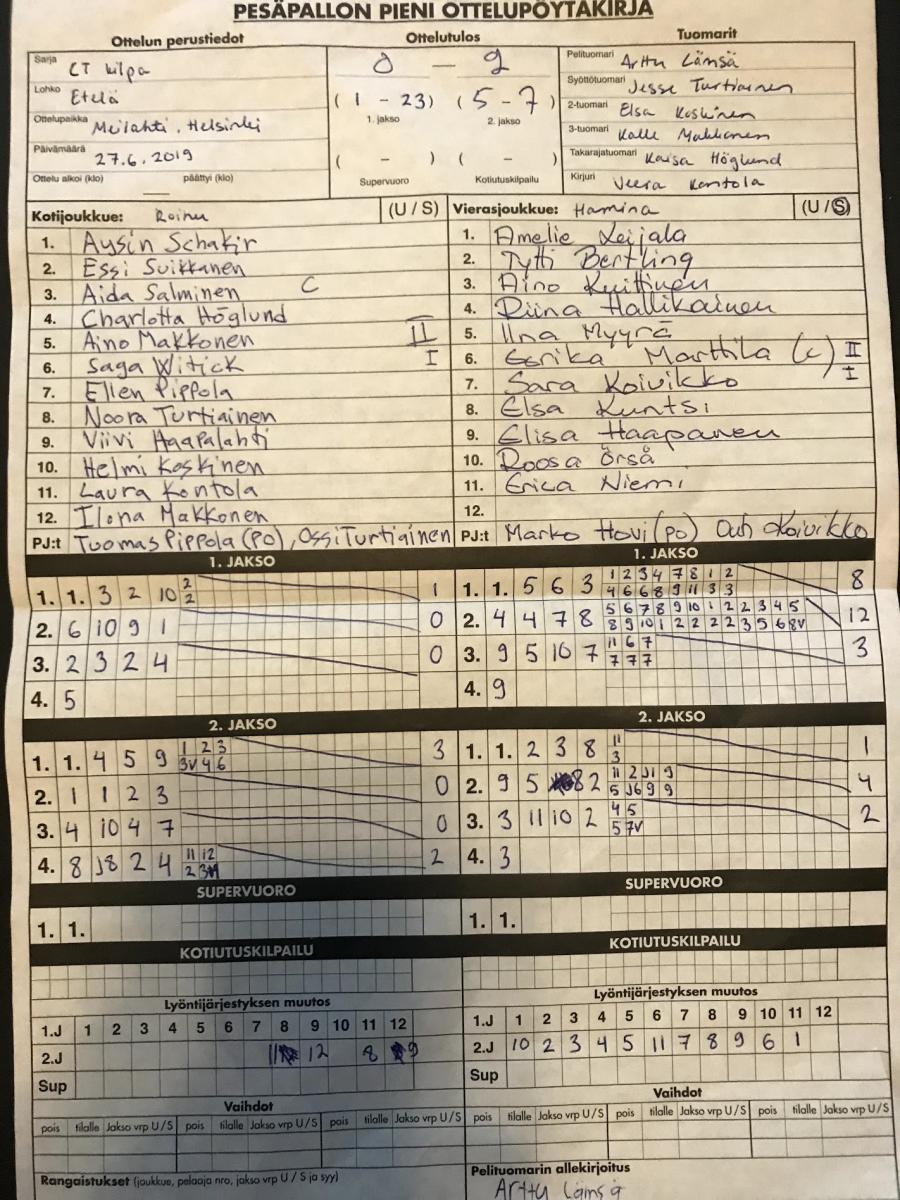 PESÄPALLON PIENI OTTELUPÖYTÄKIRJA
Ottelun perustiedot
Sarja CT kilpa
Lohko Etelä
Ottelupaikka Meilahti, Helsinki
Päivämäärä 27.6.2019
Ottelu alkoi (klo) päättyi (klo)
Ottelutulos
0 — 2
( 1 - 23 ) ( 5 - 7 )
1. jakso 2. jakso
( - ) ( - )
Supervuoro Kotiutuskilpailu
Tuomarit
Pelituomari Arttu Lämsä
Syöttötuomari Jesse Turtiainen
2-tuomari Elsa Koskinen
3-tuomari Kalle Makkonen
Takarajatuomari Kaisa Höglund
Kirjuri Veera Kontola
Kotijoukkue: Roihu (U / S)
1. Aysin Schakir
2. Essi Suikkanen
3. Aida Salminen C
4. Charlotta Höglund
5. Aino Makkonen II
6. Saga Witick I
7. Ellen Pippola
8. Noora Turtiainen
9. Viivi Haapalahti
10. Helmi Koskinen
11. Laura Kontola
12. Ilona Makkonen
PJ:t Tuomas Pippola (PO), Ossi Turtiainen
Vierasjoukkue: Hamina (U / S)
1. Amelie Leijala
2. Tytti Bertling
3. Aino Knittinen
4. Riina Hallikainen
5. Iina Myyrä
6. Marttila (c) II
7. Sara Koivikko I
8. Elsa Kuntsi
9. Elisa Haapanen
10. Roosa Örså
11. Erica Niemi
12.
PJ:t Marko Hovi (po) Outi Koivikko
1. JAKSO
1. 1. 3 2 10 2 1
2
2. 6 10 9 1 0
3. 2 3 2 4 0
4. 5
2. JAKSO
1. 1. 4 5 9 1 2 3 3
3V 4 6
2. 1 1 2 3 0
3. 4 10 4 7 0
4. 8 J8 2 4 11 12 2
2
SUPERVUORO
1. 1.
KOTIUTUSKILPAILU
Lyöntijärjestyksen muutos
1.J 1 2 3 4 5 6 7 8 9 10 11 12
2.J 11 12 8 9
Sup
Vaihdot
pois tilalle Jakso vrp U / S pois tilalle Jakso vrp U / S pois tilalle Jakso vrp U / S
Rangaistukset (joukkue, pelaaja nro, jakso vrp U / S ja syy)
1. JAKSO
1. 1. 5 6 3 1 2 3 4 7 8 1 2 8
4 6 6 8 9 11 3 3
2. 4 4 7 8 5 6 7 8 9 10 1 2 2 3 4 5 12
8 9 10 1 2 2 2 2 3 5 6 8V
3. 9 5 10 7 11 6 7 3
7 7 7
4. 9
2. JAKSO
1. 1. 2 3 8 11 1
3
2. 9 5 8 2 11 2 J1 9 4
5 J6 9 9
3. 3 11 10 2 4 5 2
5 7V
4. 3
SUPERVUORO
1. 1.
KOTIUTUSKILPAILU
Lyöntijärjestyksen muutos
1.J 1 2 3 4 5 6 7 8 9 10 11 12
2.J 10 2 3 4 5 11 7 8 9 6 1
Sup
Vaihdot
pois tilalle Jakso vrp U / S pois tilalle Jakso vrp U / S pois tilalle Jakso vrp U / S
Pelituomarin allekirjoitus
Arttu Lämsä